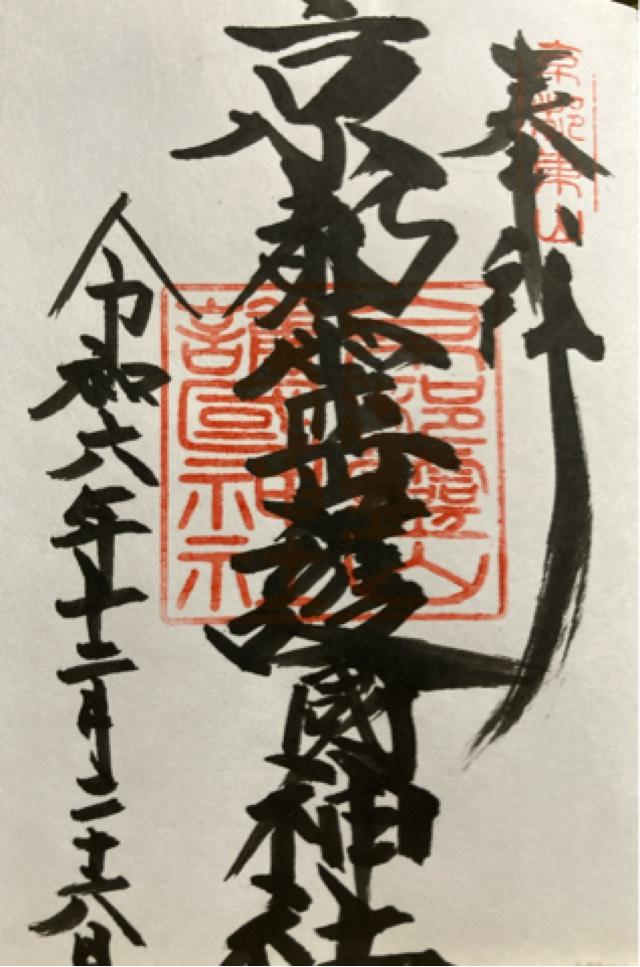 京都東山
奉拝
京都霊山護國神社
京都靈山
護國神社
令和六年十二月二十六日